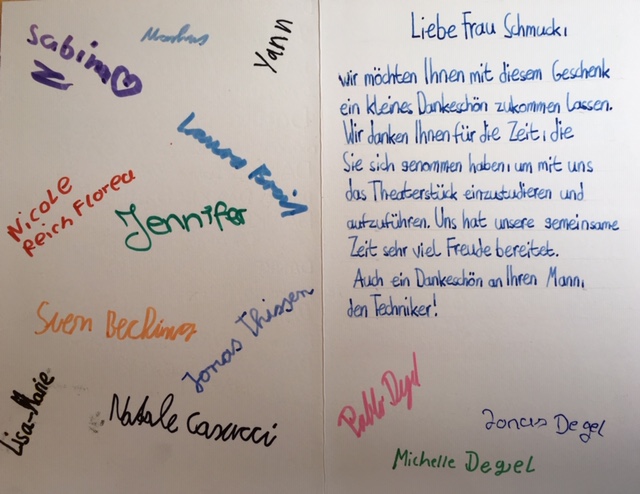 Sabina
Markus
Yann
Laura
Nicole
Reich Florea
Jennifer
Sven
Jonas Thissen
Lisa-Marie
Natale Casucci
Liebe Frau Schmuck,
wir möchten Ihnen mit diesem Geschenk
ein kleines Dankeschön zukommen lassen.
Wir danken Ihnen für die Zeit, die
Sie sich genommen haben, um mit uns
das Theaterstück einzustudieren und
aufzuführen. Uns hat unsere gemeinsame
Zeit sehr viel Freude bereitet.
Auch ein Dankeschön an Ihren Mann,
den Techniker!
Pablo Degel
Jonas Degel
Michelle Degel